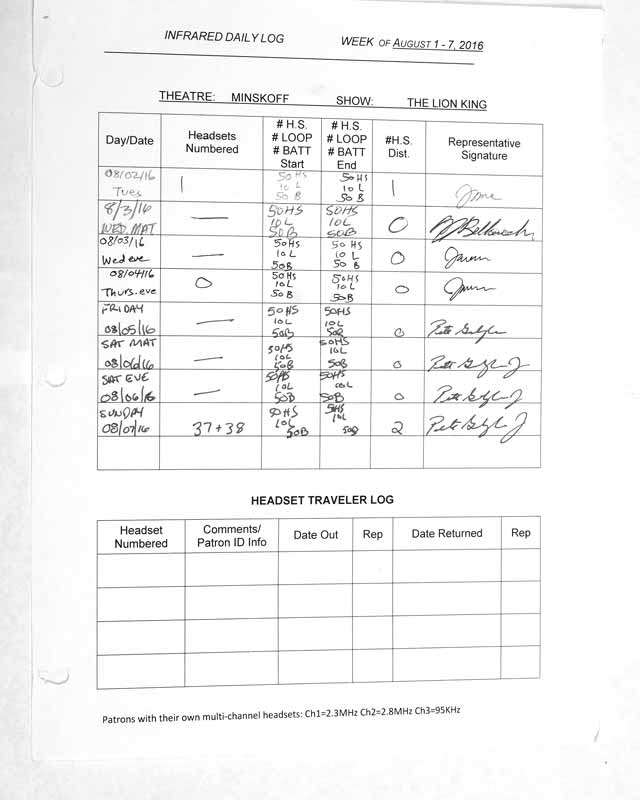 INFRARED DAILY LOG WEEK OF AUGUST 1 - 7, 2016
THEATRE: MINSKOFF SHOW: THE LION KING
Day/Date
Headsets Numbered
# H.S. # LOOP # BATT Start
# H.S. # LOOP # BATT End
#H.S. Dist.
Representative Signature
08/02/16 Tues
1
50 HS 10 L 50 B
50 HS 10 L 50 B
1
8/3/16 WED. MAT
—
50HS 10L 50B
50HS 10L 50B
0
08/03/16 Wed eve
—
50HS 10L 50B
50 HS 10 L 50 B
0
08/04/16 Thurs. eve
0
50HS 10L 50B
50HS 10L 50B
0
FRIDAY 08/05/16
—
50HS 10L 50B
50HS 10L 50B
0
SAT MAT 08/06/16
—
50HS 10L 50B
50HS 10L 50B
0
SAT EVE 08/06/16
—
50HS 10L 50B
50HS 10L 50B
0
SUNDAY 08/07/16
37+38
50HS 10L 50B
50HS 10L 50B
2
HEADSET TRAVELER LOG
Headset Numbered
Comments/ Patron ID Info
Date Out
Rep
Date Returned
Rep
Patrons with their own multi-channel headsets: Ch1=2.3MHz Ch2=2.8MHz Ch3=95KHz